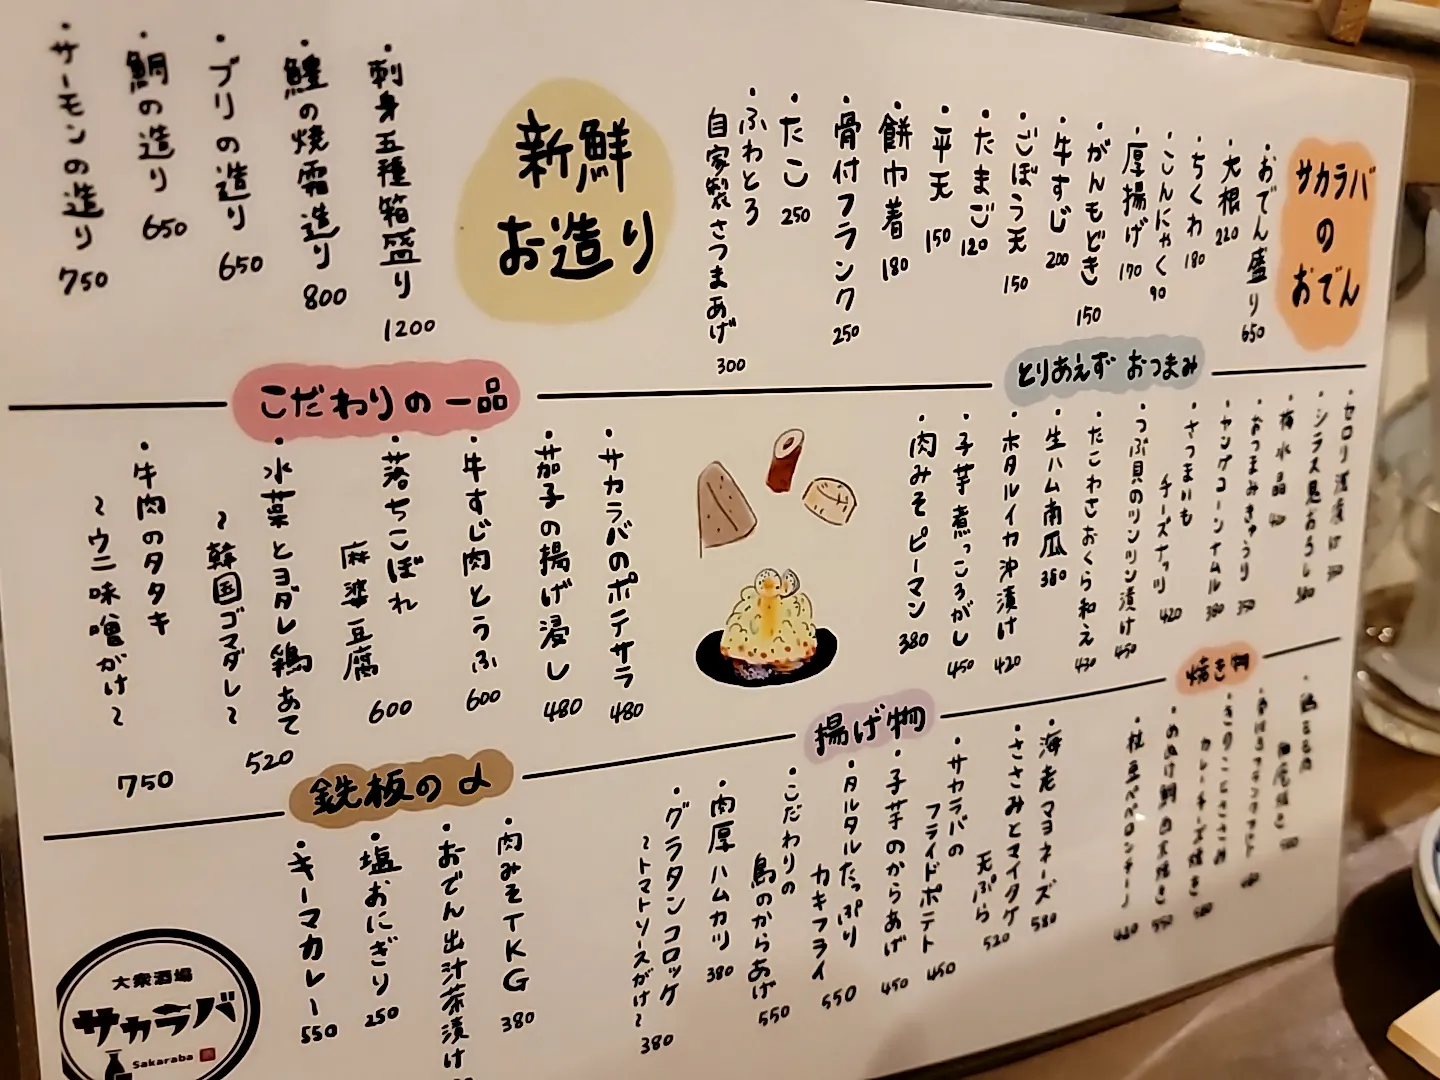 サカラバ
の
おでん
・おでん盛り 650
・大根 220
・ちくわ 180
・こんにゃく 90
・厚揚げ 170
・がんもどき 150
・牛すじ 200
・ごぼう天 150
・たまご 120
・平天 150
・餅巾着 180
・骨付フランク 250
・たこ 250
・ふわとろ
自家製さつまあげ 300
新鮮
お造り
・刺身五種箱盛り 1200
・鰹の焼霜造り 800
・ブリの造り 650
・鯛の造り 650
・サーモンの造り 750
とりあえず おつまみ
・セロリ浅漬け
・シラス見おろし 380
・梅水晶
・おつまみきゅうり 350
・ヤングコーンナムル 380
・さつまいも
チーズナッツ 420
・つぶ貝のツンツン漬け 450
・たこわさおくら和え 430
・生ハム南瓜 380
・ホタルイカ沖漬け 420
・子芋煮っころがし 450
・肉みそピーマン 380
こだわりの一品
・サカラバのポテサラ 480
・茄子の揚げ浸し 480
・牛すじ肉とうふ 600
・落ちこぼれ
麻婆豆腐 600
・水菜とヨダレ鶏あて
〜韓国ゴマダレ〜 520
・牛肉のタタキ
〜ウニ味噌がけ〜 750
焼き物
カレーチーズ焼き
・めぬけ鯛
・枝豆ペペロンチーノ 480
揚げ物
・海老マヨネーズ 580
・ささみとマイタケ
天ぷら 520
・サカラバの
フライドポテト 450
・子芋のからあげ 450
・タルタルたっぷり
カキフライ 550
・こだわりの
鳥のからあげ 550
・肉厚ハムカツ 380
・グラタンコロッケ
〜トマトソースがけ〜 380
鉄板の〆
・肉みそTKG 380
・おでん出汁茶漬け
・塩おにぎり 250
・キーマカレー 550
大衆酒場
サカラバ
Sakaraba